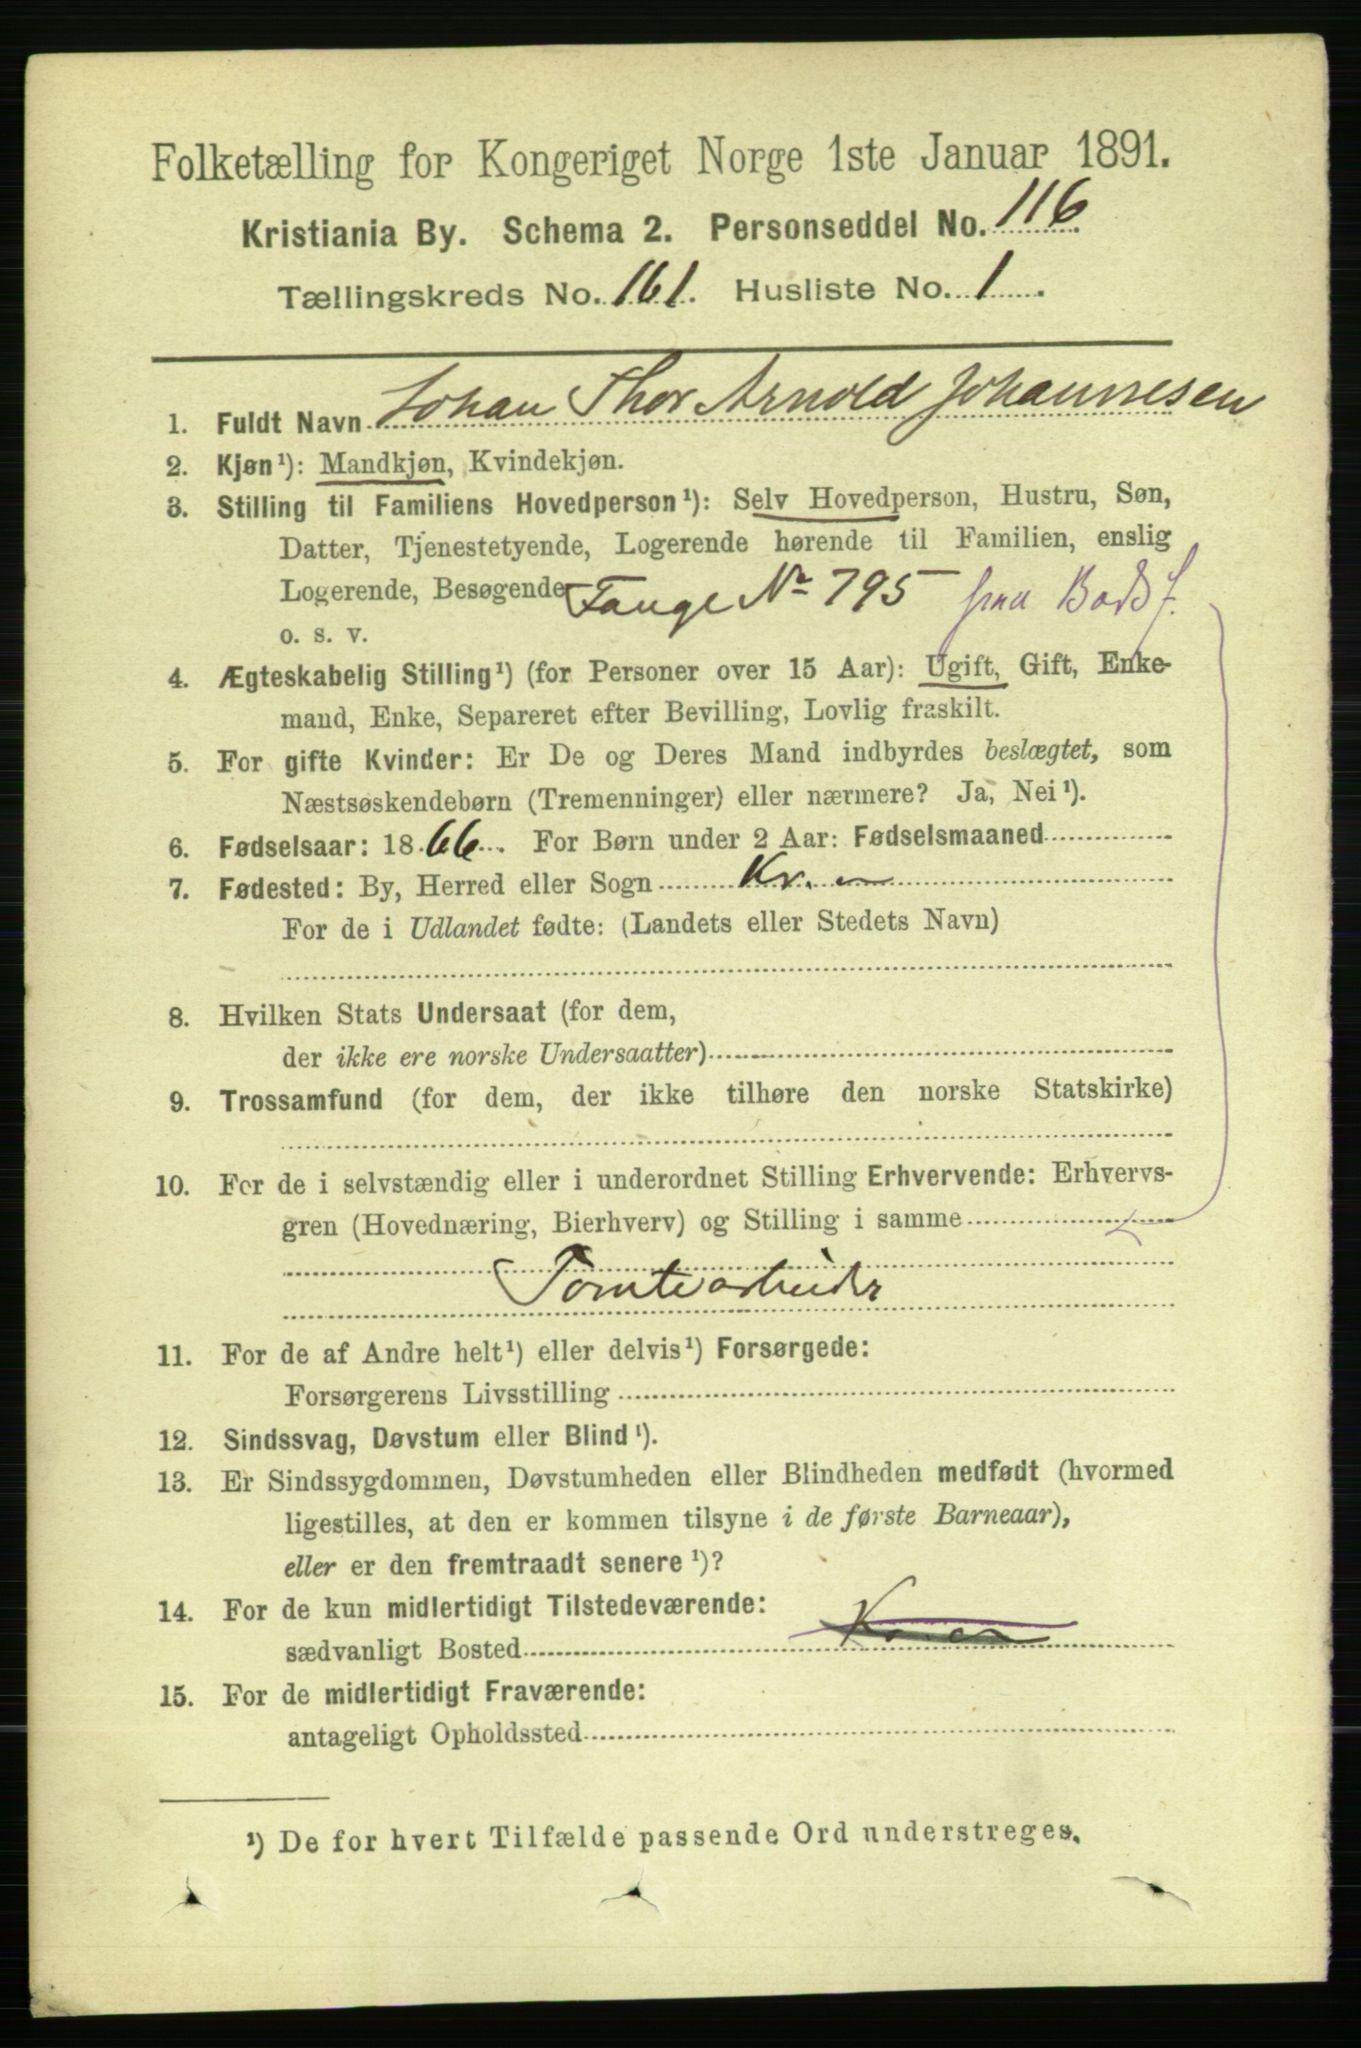 Folketælling for Kongeriget Norge 1ste Januar 1891.
Kristiania By. Schema 2. Personseddel No. 116
Tællingskreds No. 161. Husliste No. 1.
1. Fuldt Navn Johan Thor Arnold Johannesen
2. Kjøn¹): Mandkjøn, Kvindekjøn.
3. Stilling til Familiens Hovedperson¹): Selv Hovedperson, Hustru, Søn,
Datter, Tjenestetyende, Logerende hørende til Familien, enslig
Logerende, Besøgende Fange No 795 fraa Bodsf.
o. s. v.
4. Ægteskabelig Stilling¹) (for Personer over 15 Aar): Ugift, Gift, Enke-
mand, Enke, Separeret efter Bevilling, Lovlig fraskilt.
5. For gifte Kvinder: Er De og Deres Mand indbyrdes beslægtet, som
Næstsøskendebørn (Tremenninger) eller nærmere? Ja, Nei¹).
6. Fødselsaar: 1866. For Børn under 2 Aar: Fødselsmaaned
7. Fødested: By, Herred eller Sogn Kr.
For de i Udlandet fødte: (Landets eller Stedets Navn)
8. Hvilken Stats Undersaat (for dem,
der ikke ere norske Undersaatter)
9. Trossamfund (for dem, der ikke tilhøre den norske Statskirke)
10. For de i selvstændig eller i underordnet Stilling Erhvervende: Erhvervs-
gren (Hovednæring, Bierhverv) og Stilling i samme
Tomtearbeider
11. For de af Andre helt¹) eller delvis¹) Forsørgede:
Forsørgerens Livsstilling
12. Sindssvag, Døvstum eller Blind¹).
13. Er Sindssygdommen, Døvstumheden eller Blindheden medfødt (hvormed
ligestilles, at den er kommen tilsyne i de første Barneaar),
eller er den fremtraadt senere¹)?
14. For de kun midlertidigt Tilstedeværende:
sædvanligt Bosted
15. For de midlertidigt Fraværende:
antageligt Opholdssted
¹) De for hvert Tilfælde passende Ord understreges.